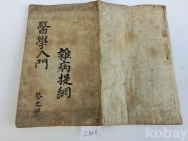 醫學入門
雜病提綱
卷之四
kobay